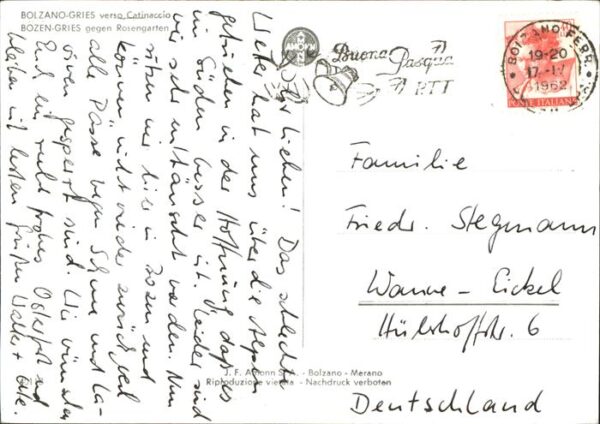 BOLZANO-GRIES verso Catinaccio
BOZEN-GRIES gegen Rosengarten
Ihr Lieben! Das schlechte
Wetter hat uns über die Alpen
getrieben in der Hoffnung, daß es
im Süden besser ist. Leider sind
wir sehr enttäuscht worden. Nun
sitzen wir hier in Bozen und
können nicht wieder zurück, weil
alle Pässe wegen Schnee und La-
winen gesperrt sind. Wir wünschen
Euch ein recht frohes Osterfest und
bleiben mit besten Grüßen Walter +
J. F. Amonn S. A. - Bolzano - Merano
Riproduzione vietata - Nachdruck verboten
AMONN
Buona
Pasqua
PTT
BOLZANO FERR.
19-20
17-IV
1962
POSTE ITALIANE
Familie
Friedr. Stegmann
Wanne-Eickel
Hülshoffstr. 6
Deutschland